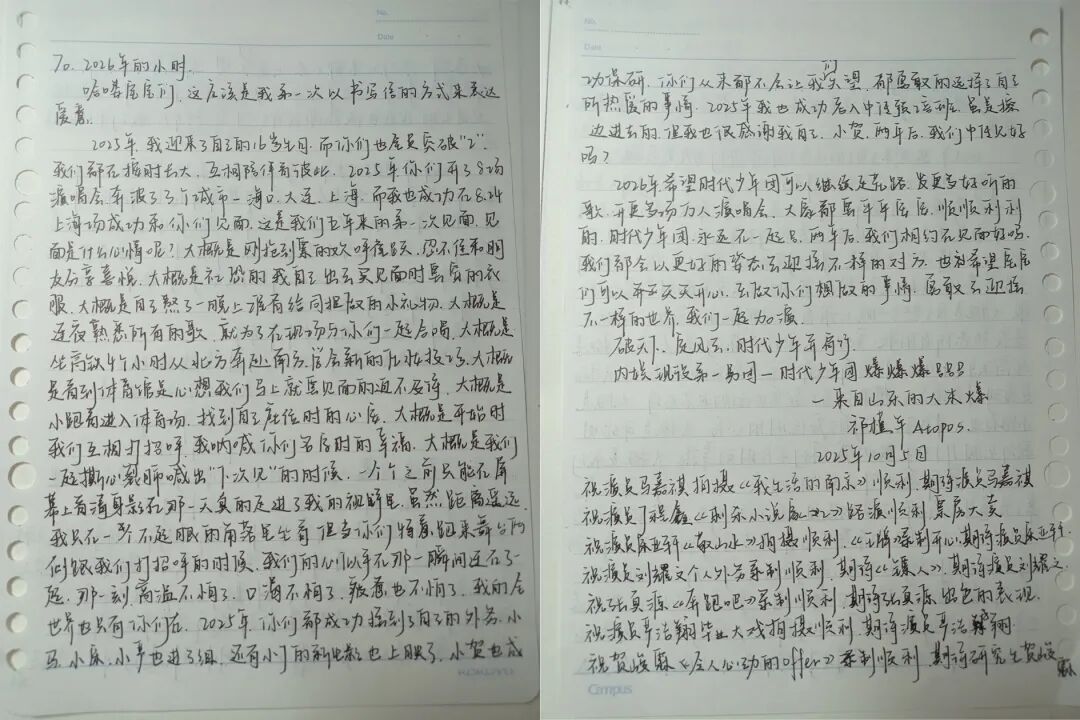 No.
Date
To. 2026年的小时.
哈喽崽崽们, 这应该是我第一次以书写信的方式来表达
爱意.
2025年, 我迎来了自己的16岁生日. 而你们也全员突破"2".
我们都在按时长大, 互相陪伴着彼此. 2025年你们开了8场
演唱会. 奔波了3个城市—海口、大连、上海. 而我也成功在8.24
上海场成功和你们见面. 这是我们五年来的第一次见面. 见
面是什么心情呢? 大概是刚抢到票的欢呼雀跃, 忍不住和朋
友分享喜悦. 大概是社恐的我自己出去买见面时要穿的衣
服. 大概是自己熬了一晚上准备给同担做的小礼物. 大概是
连夜熟悉所有的歌. 就为了在现场与你们一起合唱. 大概是
坐高铁4个小时从北方奔赴南方. 学会新的化妆技巧. 大概
是看到体育馆是心想我们马上就要见面的迫不及待. 大概是
小跑着进入体育场, 找到自己座位时的心安. 大概是开始时
我们互相打招呼, 我呐喊你们名字时的幸福. 大概是我们
一起撕心裂肺喊出"下次见"的时候. 一个个之前只能在屏
幕上看清身影在那一天真的走进了我的视野里. 虽然距离遥远.
我只在一个不起眼的角落里坐着. 但当你们特意跑来舞台两
侧跟我们打招呼的时候, 我们的心似乎在那一瞬间连在了一
起. 那一刻, 高温不怕了. 口渴不怕了. 疲惫也不怕了. 我的全
世界也只有你们在. 2025年, 你们都成功接到了自己的外务. 小
马、小宋、小亨也进了组. 还有小丁的新电影也上映了. 小贺也成
KOKUYO
No.
Date
功保研. 你们从来都不会让我们失望. 都勇敢的选择了自己
所热爱的事情. 2025年我也成功考入中传强语班. 虽是擦
边进去的, 但我也很感谢我自己. 小贺, 两年后, 我们中传见好
吗?
2026年希望时代少年团可以继续走花路. 发更多好听的
歌. 开更多场万人演唱会. 大家都要平平安安, 顺顺利利
的. 时代少年团, 永远在一起吕. 两年后, 我们相约在见面好吗.
我们都会以更好的姿态去迎接不一样的对方. 也祝希望崽崽
们可以开开天天开心. 去做你们想做的事情. 勇敢去迎接
不一样的世界. 我们一起加油
破天下. 定风云. 时代少年平荷行.
内娱现役第一男团—时代少年团 爆爆爆吕吕吕
—来自山东的大米爆
祁 年 Atopos.
2025年10月5日
祝演员马嘉祺拍摄《我生活的南京》顺利, 期待演员马嘉祺
祝演员丁程鑫《刺杀小说家2》路演顺利 票房大卖
祝演员宋亚轩《敬山水》拍摄顺利, 《王牌》录制开心, 期待演员宋亚轩.
祝演员刘耀文个人外务录制顺利, 期待《镖人》, 期待演员刘耀文.
祝张真源《奔跑吧》录制顺利, 期待张真源出色的表现.
祝演员严浩翔毕业大戏拍摄顺利, 期待演员严浩翔
祝贺峻霖《令人心动的offer》录制顺利, 期待研究生贺峻霖
Campus